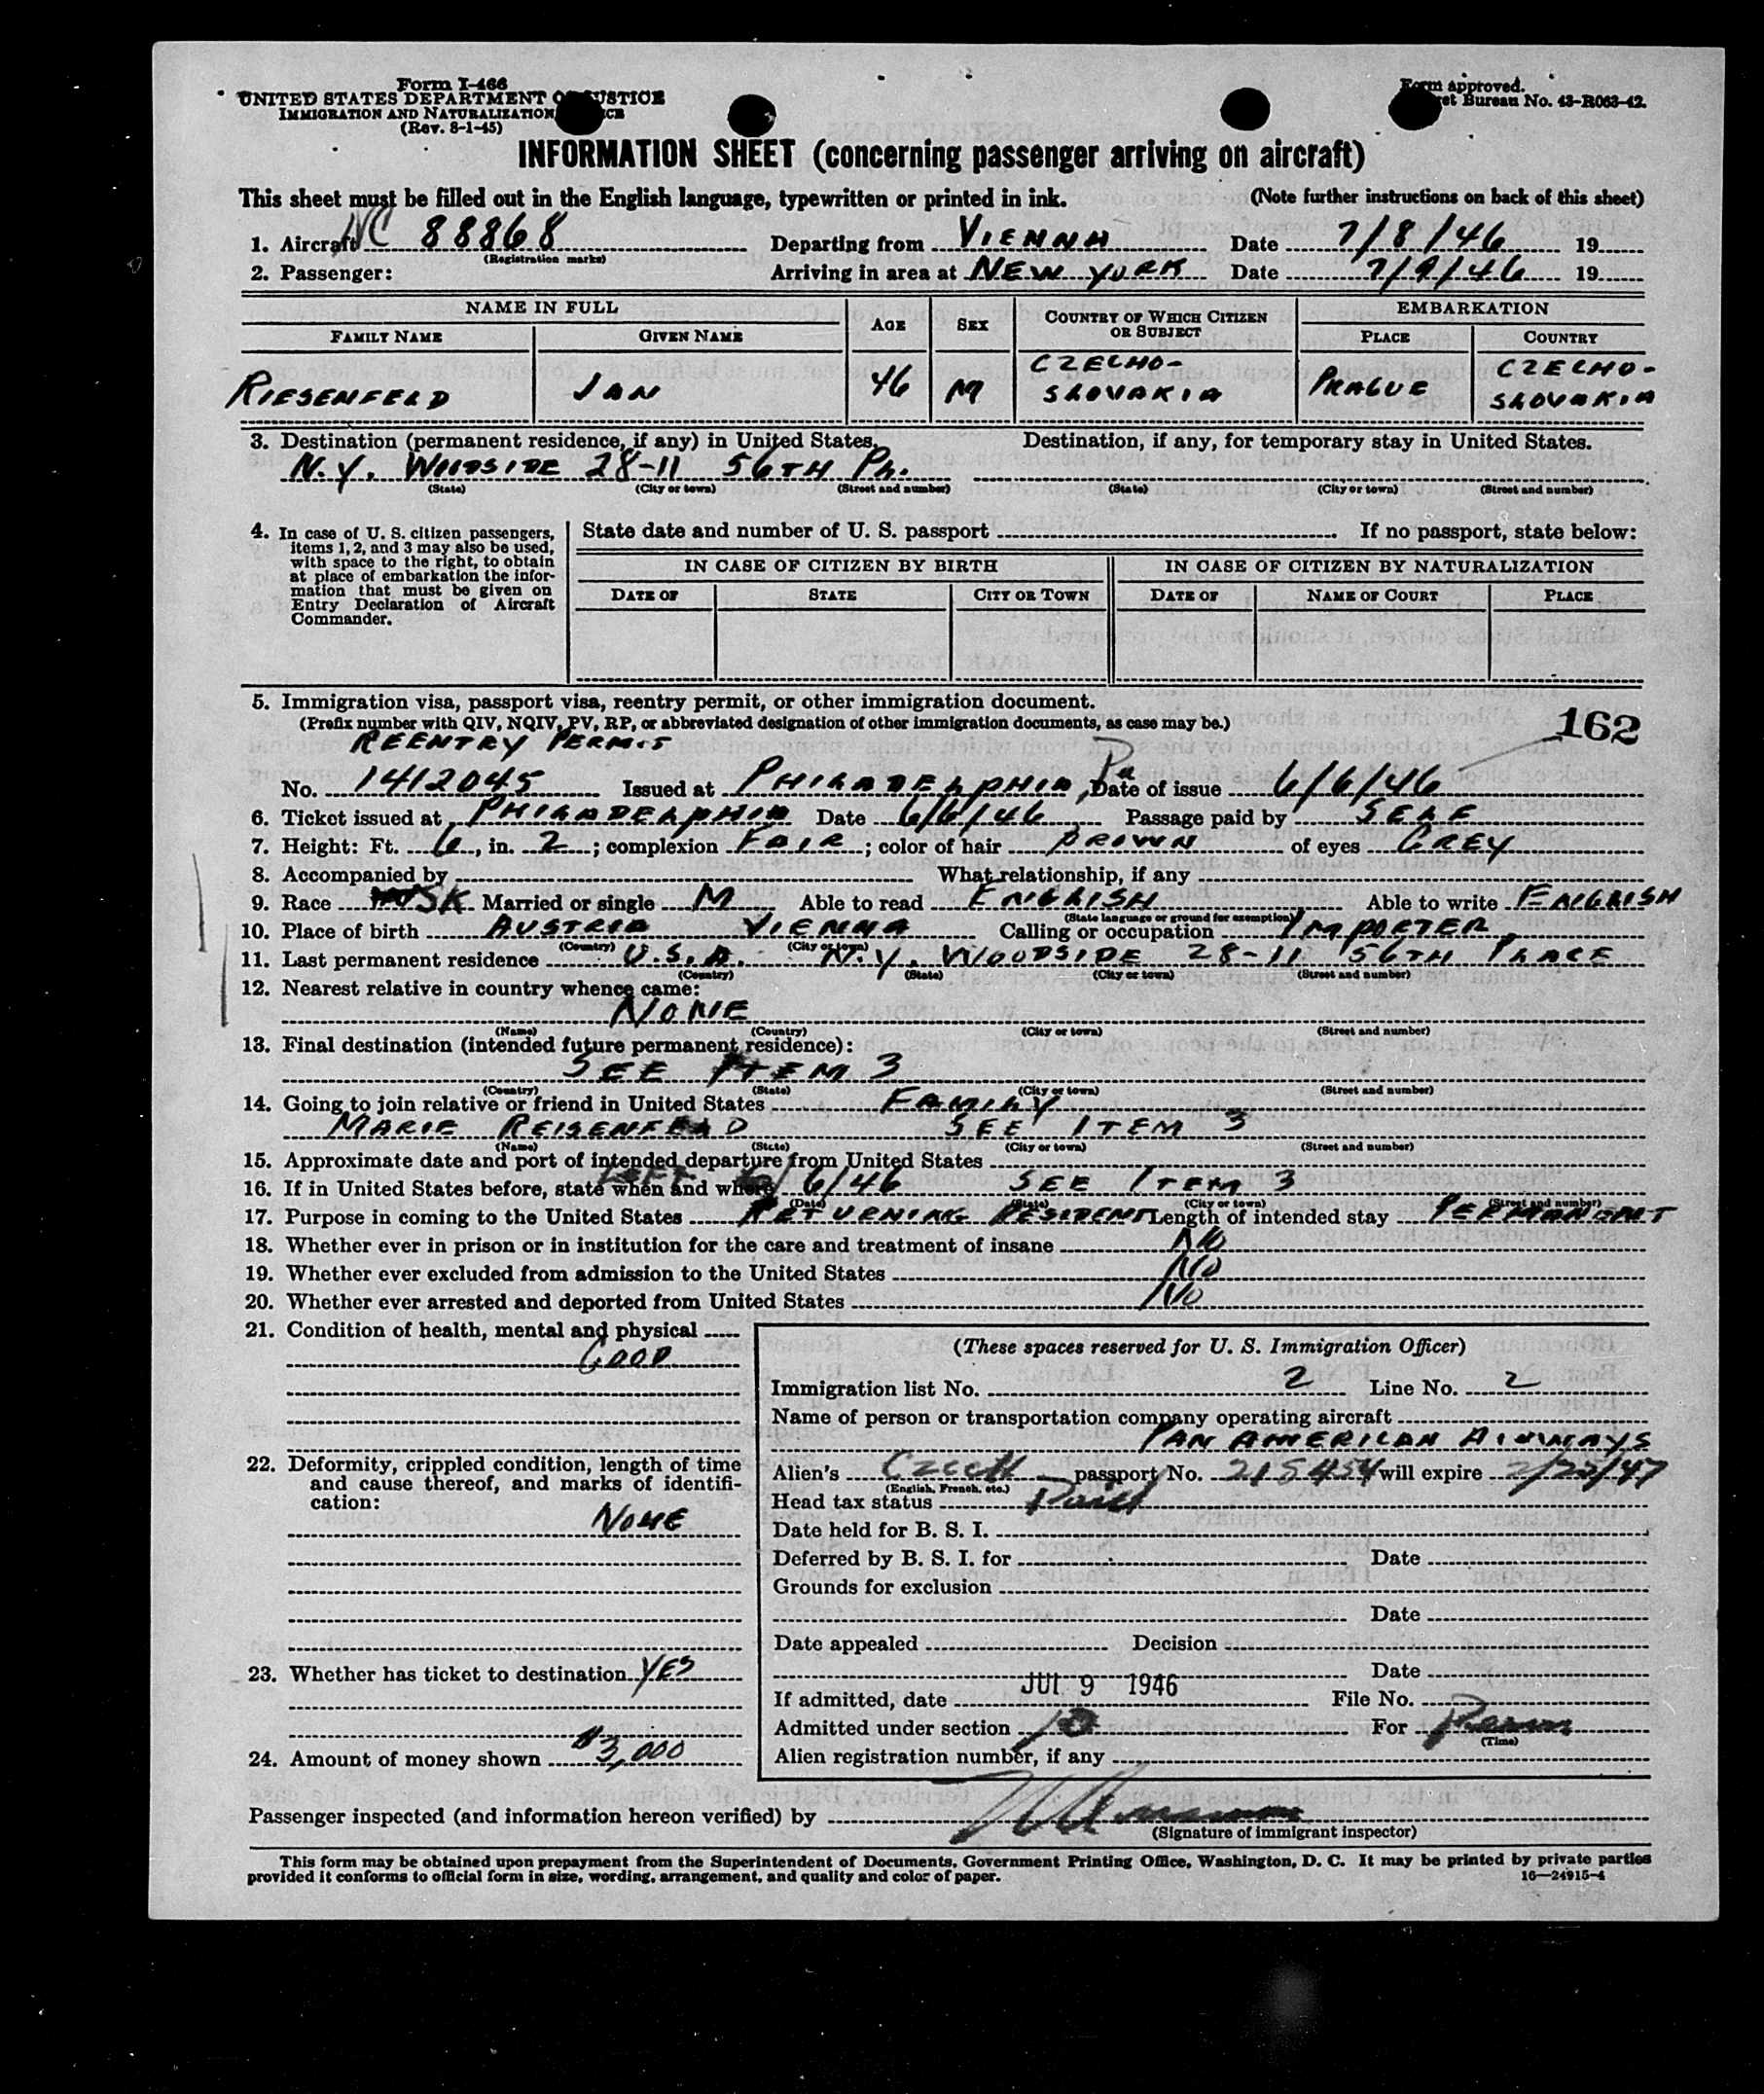 Form I-466
UNITED STATES DEPARTMENT OF JUSTICE
IMMIGRATION AND NATURALIZATION
(Rev. 8-1-45)
Form approved.
Bureau No. 43-R063-42.
INFORMATION SHEET (concerning passenger arriving on aircraft)
This sheet must be filled out in the English language, typewritten or printed in ink. (Note further instructions on back of this sheet)
1. Aircraft NC 88868 Departing from VIENNA Date 7/8/46 19
(Registration marks)
2. Passenger: Arriving in area at NEW YORK Date 7/9/46 19
NAME IN FULL AGE SEX COUNTRY OF WHICH CITIZEN OR SUBJECT EMBARKATION
FAMILY NAME GIVEN NAME PLACE COUNTRY
RIESENFELD JAN 46 M CZECHO-SLOVAKIA PRAGUE CZECHO-SLOVAKIA
3. Destination (permanent residence, if any) in United States. Destination, if any, for temporary stay in United States.
N.Y. WOODSIDE 28-11 56TH PL.
(State) (City or town) (Street and number) (State) (City or town) (Street and number)
4. In case of U. S. citizen passengers, items 1, 2, and 3 may also be used, with space to the right, to obtain at place of embarkation the information that must be given on Entry Declaration of Aircraft Commander.
State date and number of U. S. passport If no passport, state below:
IN CASE OF CITIZEN BY BIRTH IN CASE OF CITIZEN BY NATURALIZATION
DATE OF STATE CITY OR TOWN DATE OF NAME OF COURT PLACE
5. Immigration visa, passport visa, reentry permit, or other immigration document.
(Prefix number with QIV, NQIV, PV, RP, or abbreviated designation of other immigration documents, as case may be.) 162
REENTRY PERMIT
No. 1412045 Issued at PHILADELPHIA, Pa Date of issue 6/6/46
6. Ticket issued at PHILADELPHIA Date 6/6/46 Passage paid by SELF
7. Height: Ft. 6, in. 2; complexion FAIR; color of hair BROWN of eyes GREY
8. Accompanied by What relationship, if any
9. Race Married or single M Able to read ENGLISH Able to write ENGLISH
(State language or ground for exemption)
10. Place of birth AUSTRIA VIENNA Calling or occupation IMPORTER
(Country) (City or town)
11. Last permanent residence U.S.A. N.Y. WOODSIDE 28-11 56TH PLACE
(Country) (State) (City or town) (Street and number)
12. Nearest relative in country whence came:
NONE
(Name) (Country) (City or town) (Street and number)
13. Final destination (intended future permanent residence):
SEE ITEM 3
(Country) (State) (City or town) (Street and number)
14. Going to join relative or friend in United States FAMILY
MARIE REISENFELD SEE ITEM 3
(Name) (State) (City or town) (Street and number)
15. Approximate date and port of intended departure from United States
16. If in United States before, state when and where LEFT 6/6/46 SEE ITEM 3
(Date) (State) (City or town) (Street and number)
17. Purpose in coming to the United States RETURNING RESIDENT Length of intended stay PERMANENT
18. Whether ever in prison or in institution for the care and treatment of insane NO
19. Whether ever excluded from admission to the United States NO
20. Whether ever arrested and deported from United States NO
21. Condition of health, mental and physical
GOOD
22. Deformity, crippled condition, length of time and cause thereof, and marks of identification:
NONE
23. Whether has ticket to destination YES
24. Amount of money shown $3,000
(These spaces reserved for U. S. Immigration Officer)
Immigration list No. 2 Line No. 2
Name of person or transportation company operating aircraft
PAN AMERICAN AIRWAYS
Alien's Czech passport No. 218454 will expire 2/25/47
(English, French, etc.)
Head tax status Paid
Date held for B. S. I.
Deferred by B. S. I. for Date
Grounds for exclusion
Date
Date appealed Decision
Date
If admitted, date JUL 9 1946 File No.
Admitted under section 10 For Perm
(Time)
Alien registration number, if any
Passenger inspected (and information hereon verified) by
(Signature of immigrant inspector)
This form may be obtained upon prepayment from the Superintendent of Documents, Government Printing Office, Washington, D. C. It may be printed by private parties
provided it conforms to official form in size, wording, arrangement, and quality and color of paper. 16—24915-4